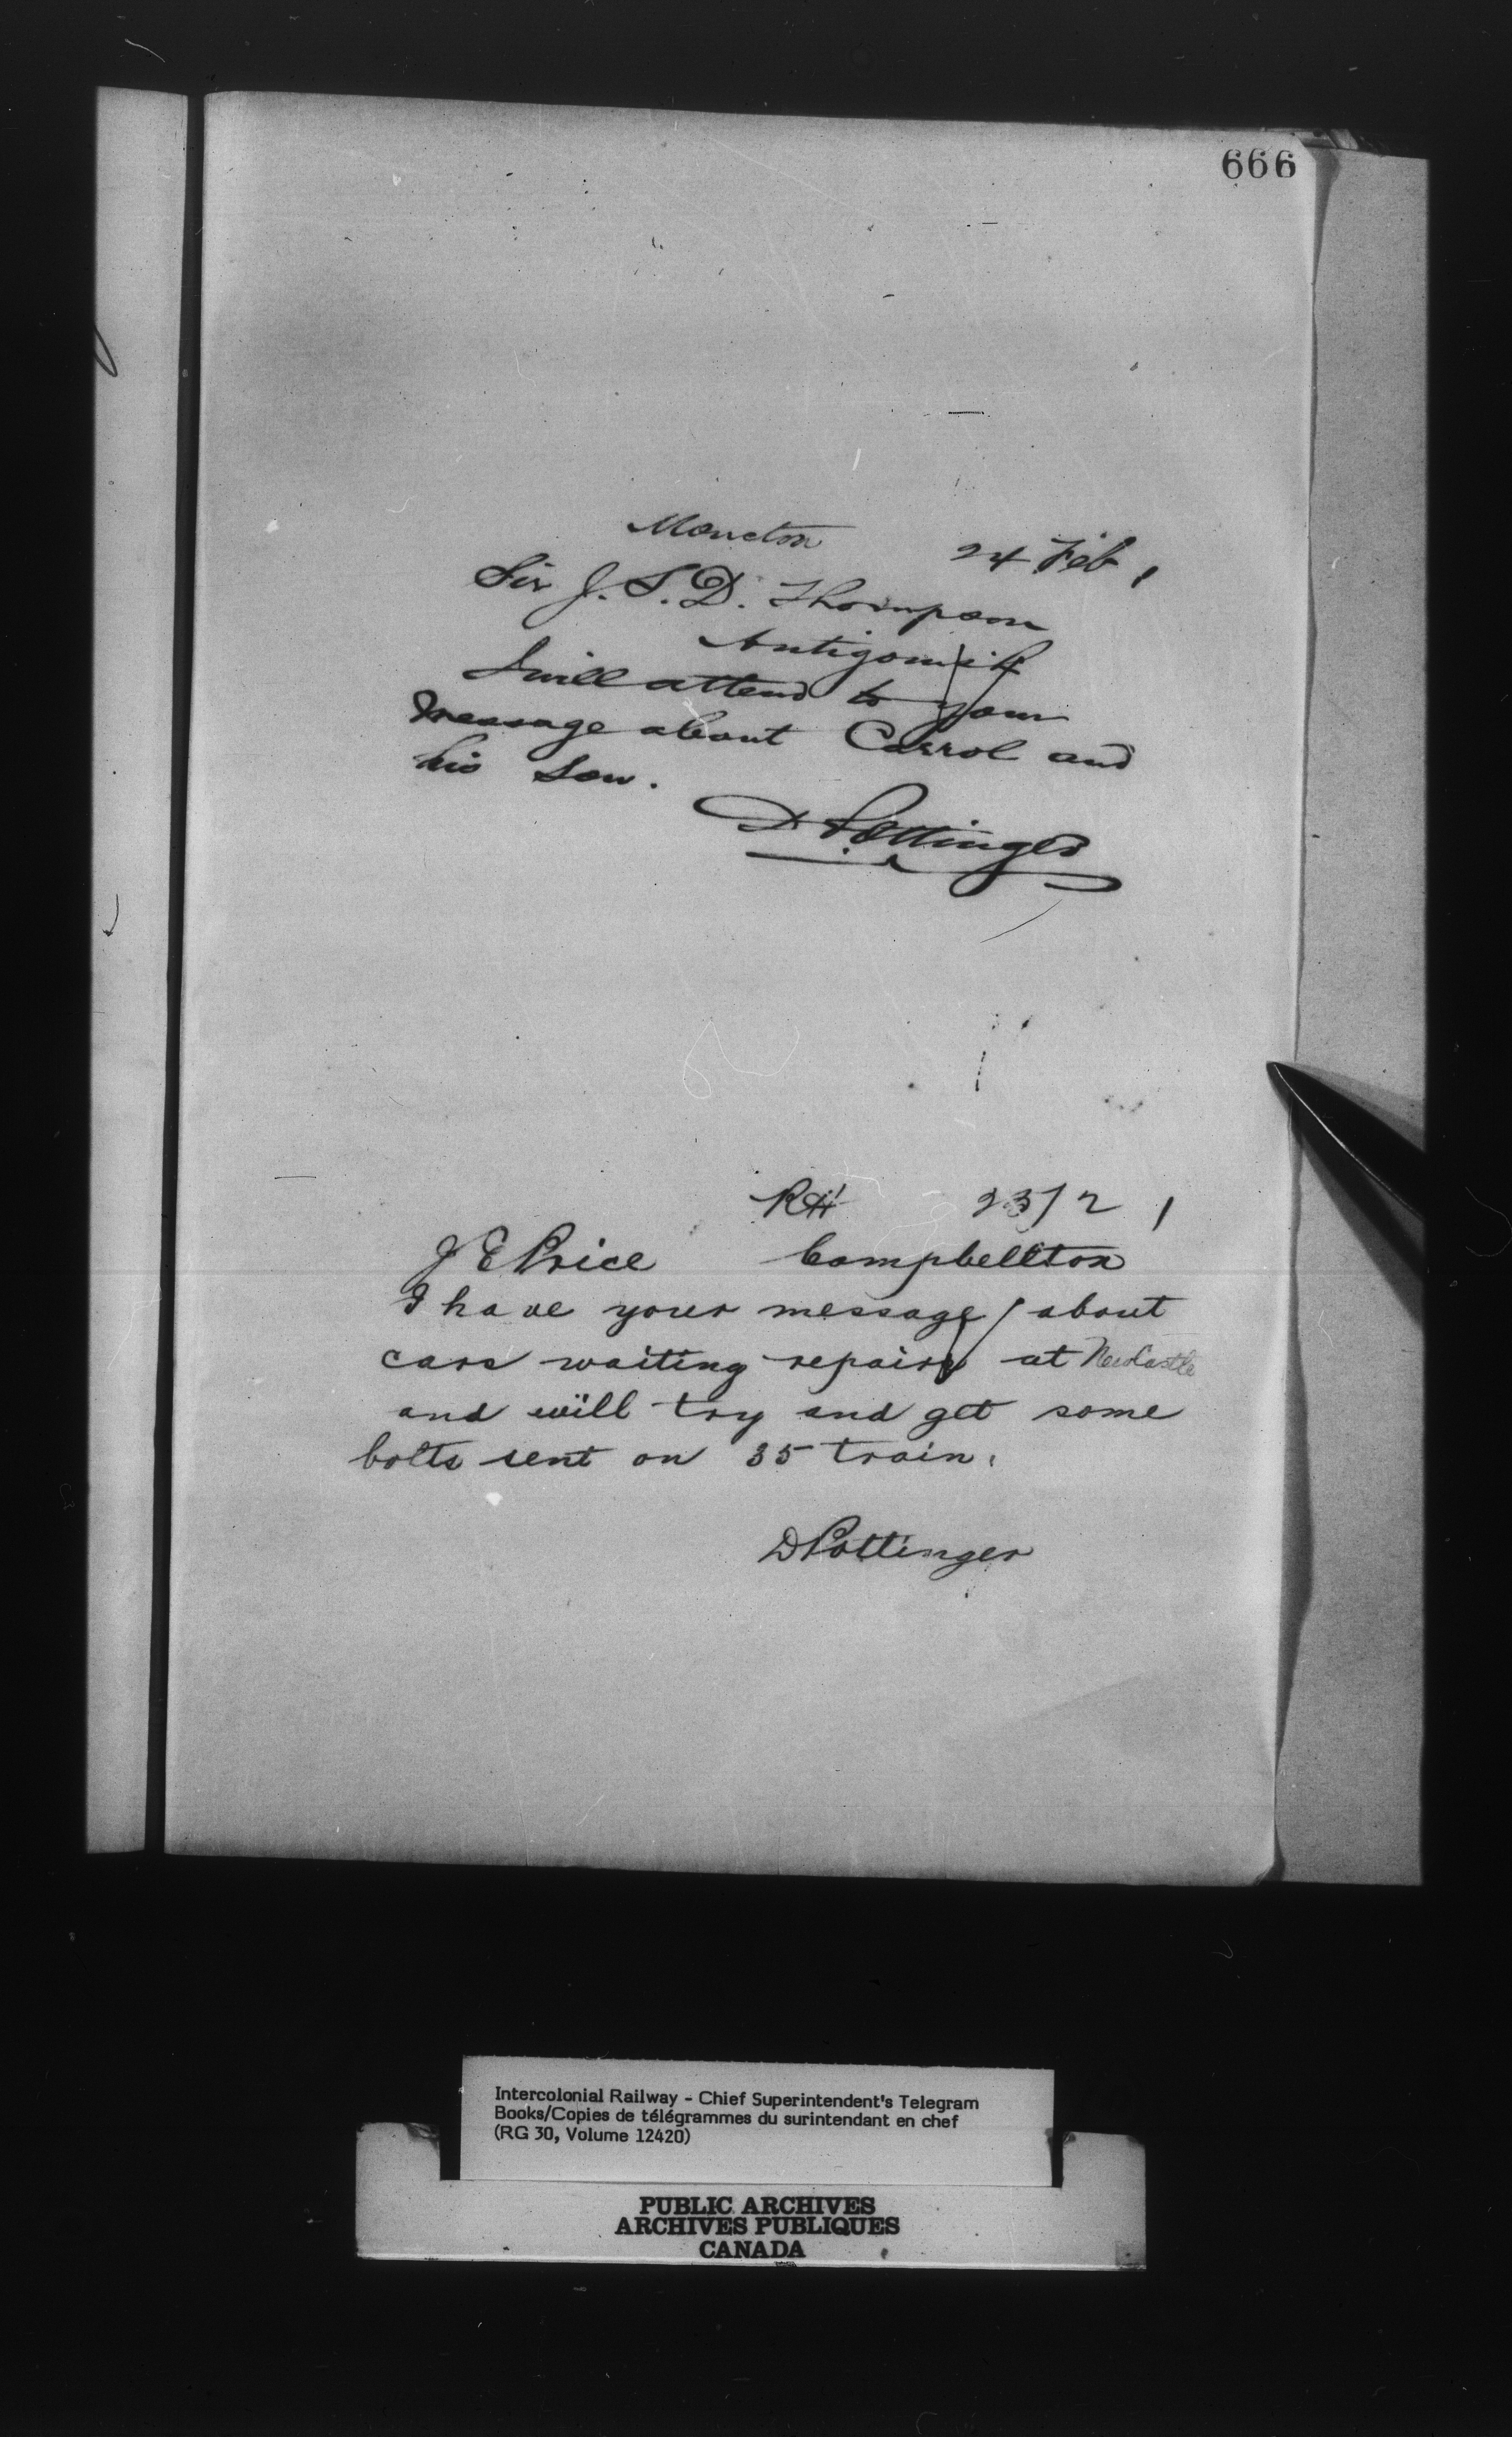 666
Moncton 24 Feb 1
Sir J. S. D. Thompson
Antigonish
I will attend to your
message about Carrol and
his son.
D Pottinger
RH 23/2 1
J E Price Campbellton
I have your message about
cars waiting repairs at NewCastle
and will try and get some
bolts sent on 35 train.
D Pottinger
Intercolonial Railway - Chief Superintendent's Telegram
Books/Copies de télégrammes du surintendant en chef
(RG 30, Volume 12420)
PUBLIC ARCHIVES
ARCHIVES PUBLIQUES
CANADA